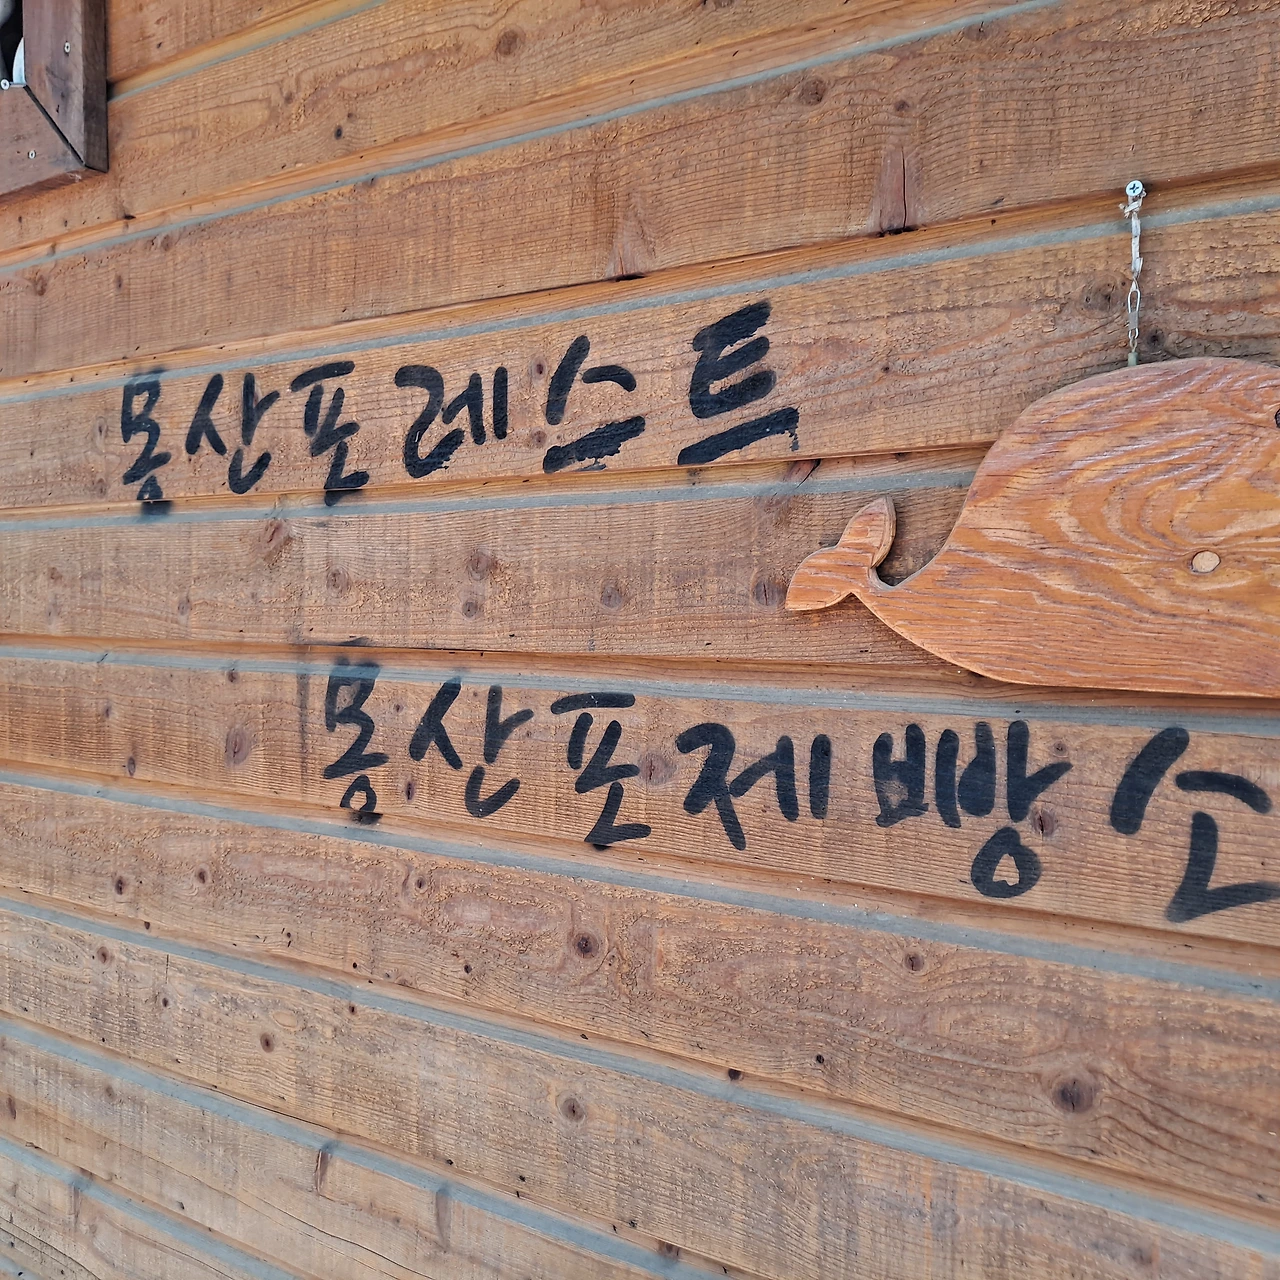 몽산포레스트
몽산포제빵소